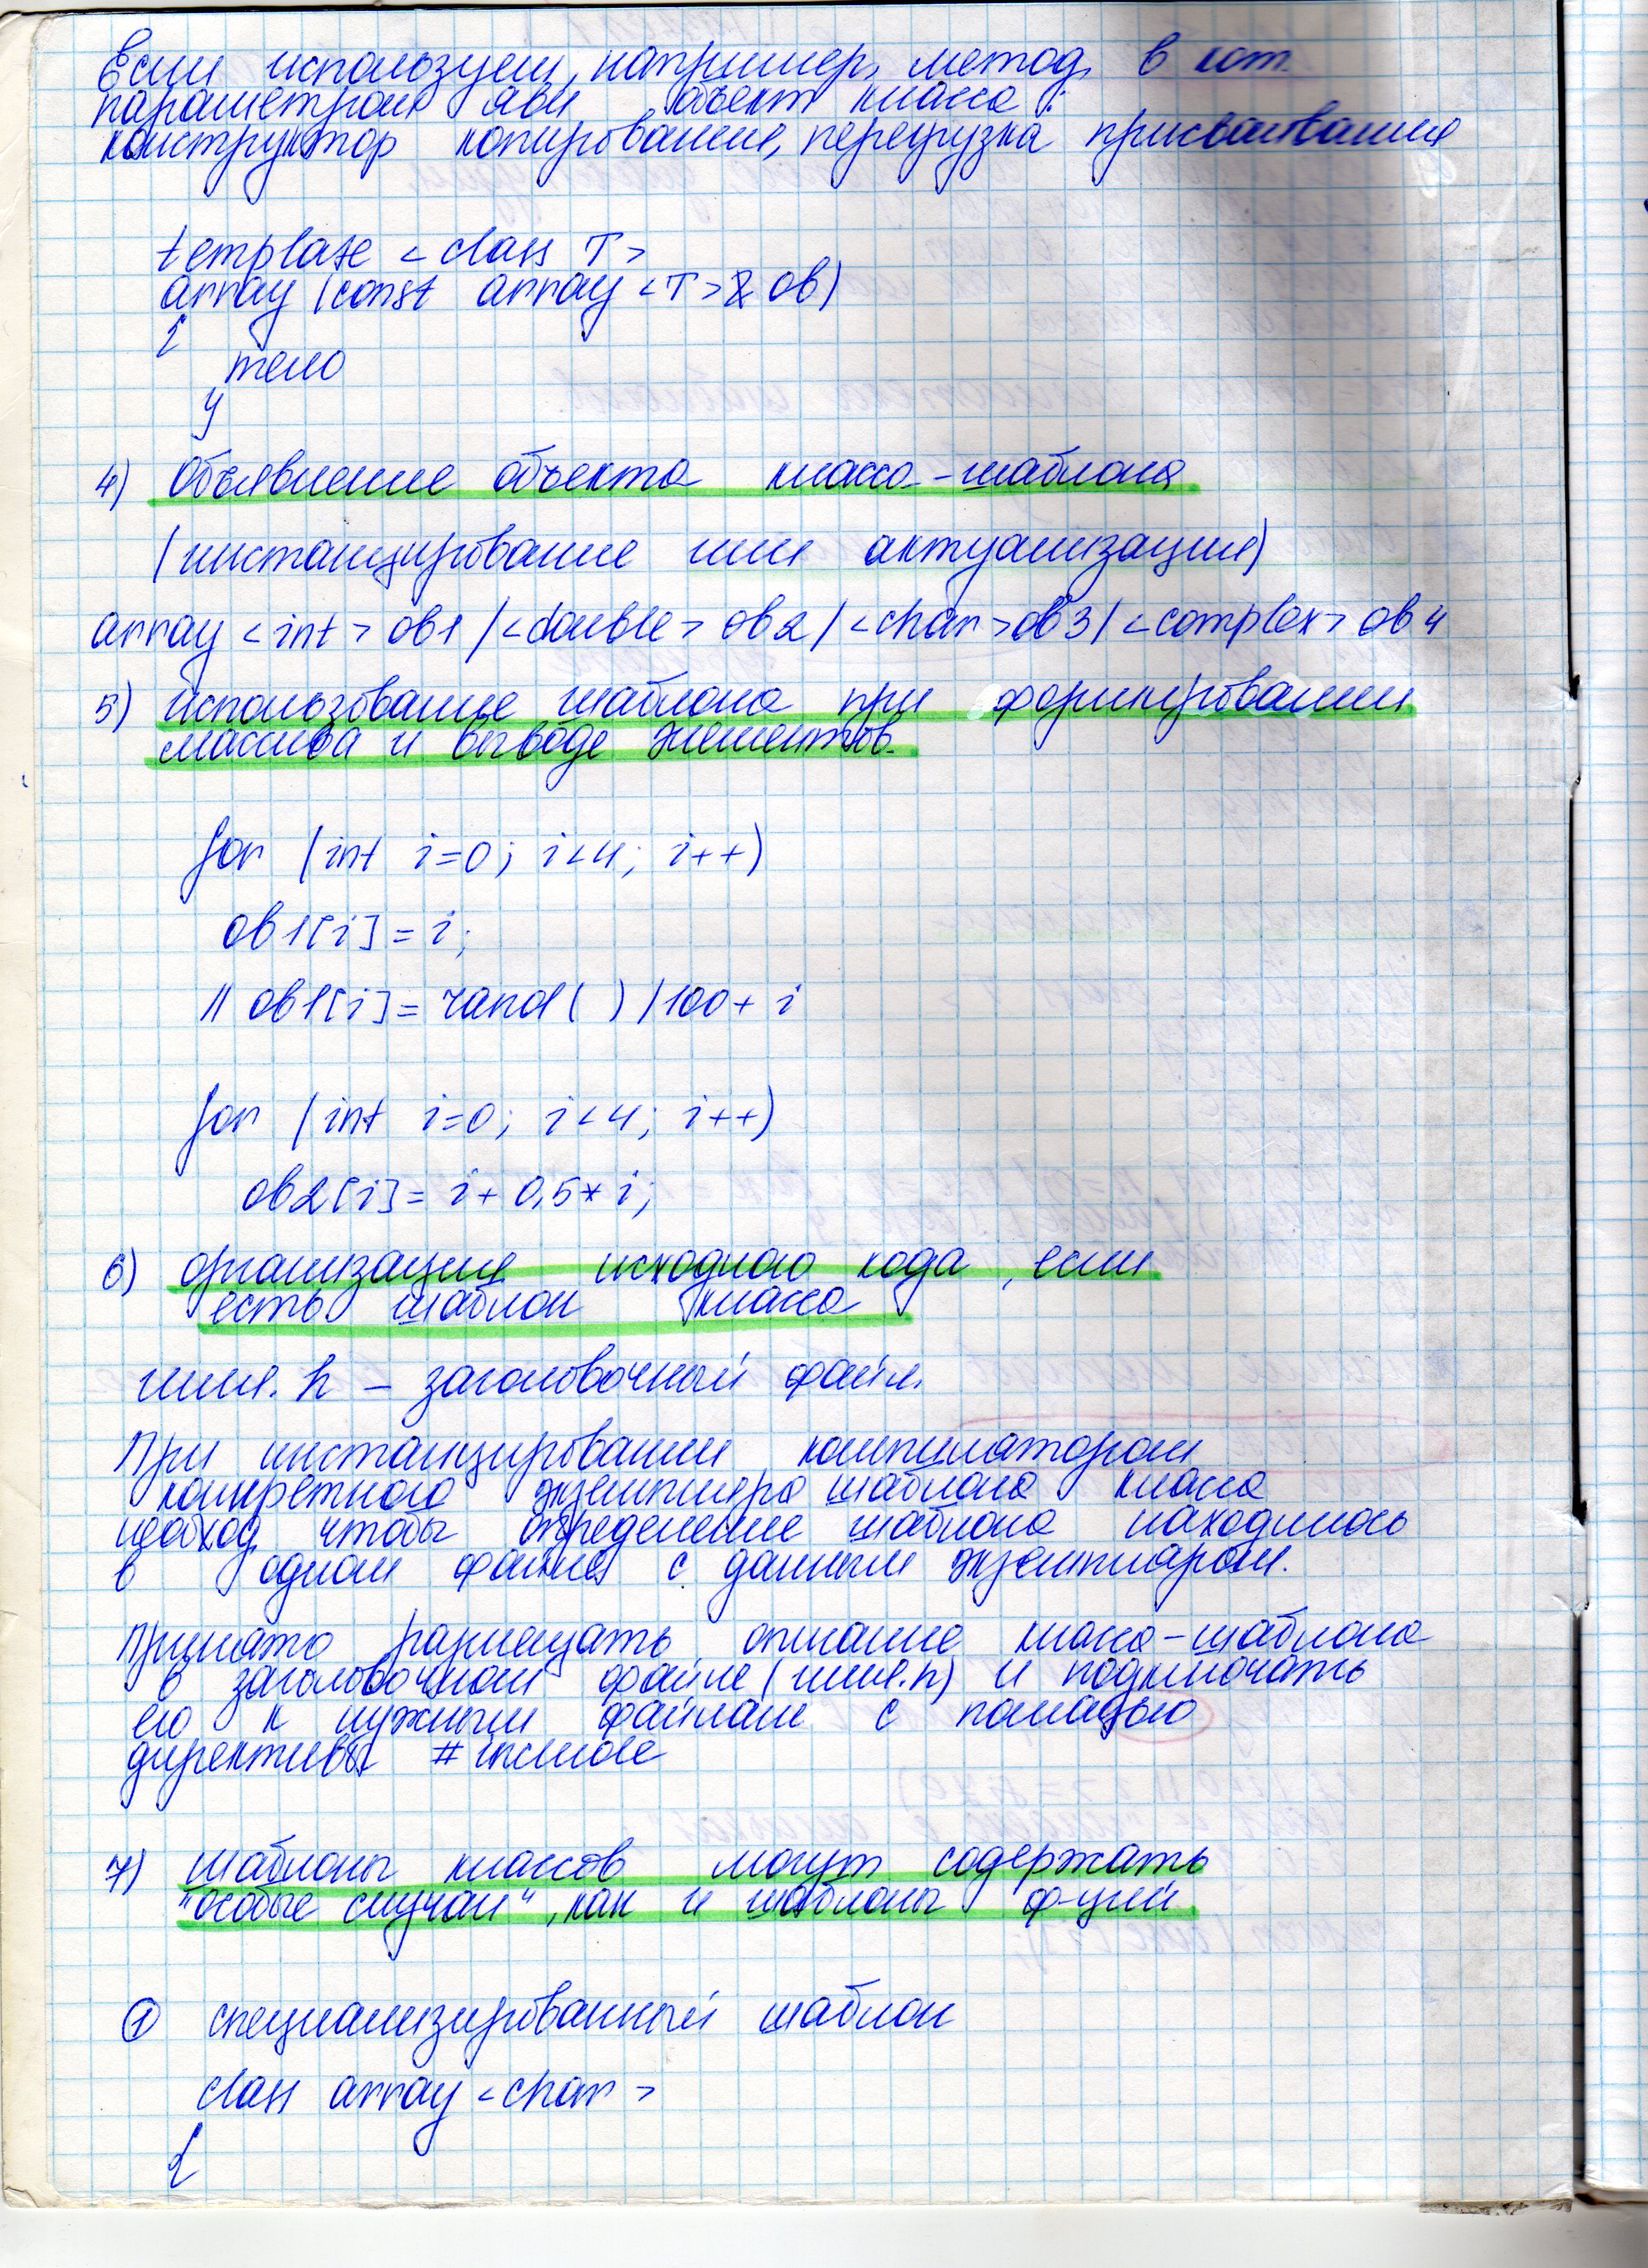 Если используем, например, метод, в кот.
параметром явл объект класса :
конструктор копирования, перегрузка присваивания
template <class T>
array (const array <T> & ob)
{
тело
}
4) Объявление объекта класса-шаблона
(инстанцирование или актуализация)
array <int> ob1 / <double> ob2 / <char> ob3 / <complex> ob4
5) использование шаблона при формировании
массива и выводе элементов.
for (int i=0; i<4; i++)
ob1[i] = i;
// ob1[i] = rand( ) / 100 + i
for (int i=0; i<4; i++)
ob2[i] = i + 0,5 * i;
6) организация исходного кода, если
есть шаблон класса
имя.h – заголовочный файл.
При инстанцировании компилятором
конкретного экземпляра шаблона класса
необход, чтобы определение шаблона находилось
в одном файле с данным экземпляром.
Принято размещать описание класса-шаблона
в заголовочном файле (имя.h) и подключать
его к нужным файлам с помощью
директивы #include
7) шаблоны классов могут содержать
"особые случаи", как и шаблоны ф-ций
① специализированный шаблон
class array <char>
{